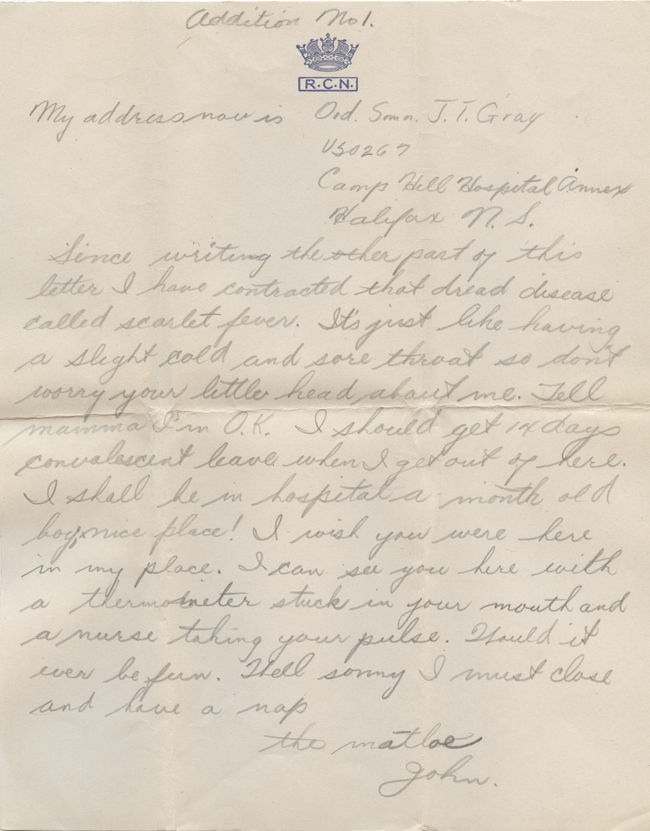 Addition No1.
R.C.N.
My address now is Ord. Smn. J.T. Gray
V50267
Camp Hill Hospital Annex
Halifax N.S.
Since writing the other part of this
letter I have contracted that dread disease
called scarlet fever. It's just like having
a slight cold and sore throat so don't
worry your little head about me. Tell
mamma I'm O.K. I should get 14 days
convalescent leave when I get out of here.
I shall be in hospital a month old
boy, nice place! I wish you were here
in my place. I can see you here with
a thermometer stuck in your mouth and
a nurse taking your pulse. Would it
ever be fun. Well sonny I must close
and have a nap
the matloe
John.